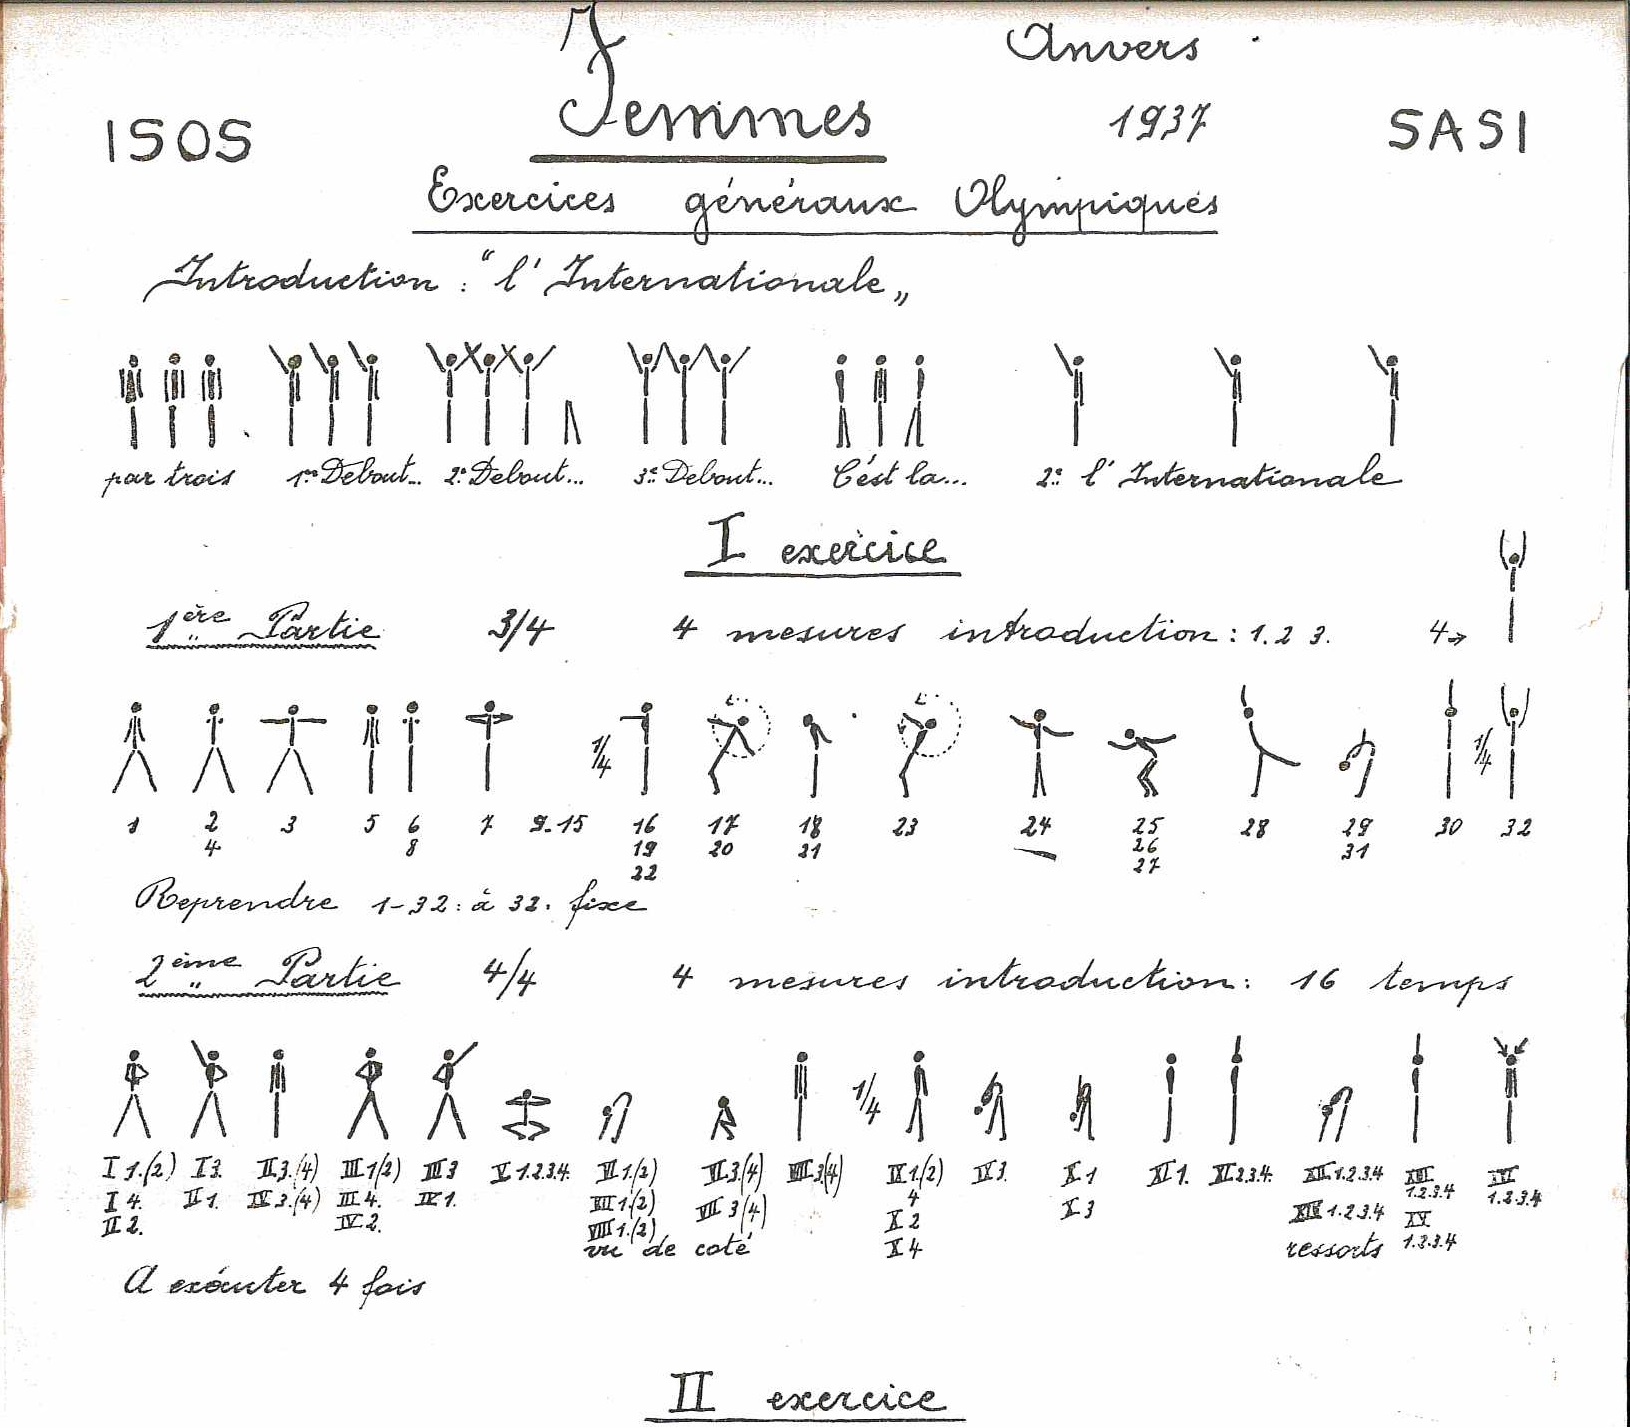 Anvers
ISOS Femmes 1937 SASI
Exercices généraux Olympiques
Introduction : "l'Internationale„
par trois 1re Debout... 2e Debout... 3e Debout... C'est la... 2e l'Internationale
I exercice
1ère Partie 3/4 4 mesures introduction : 1.2 3. 4→
1/4 1/4
1 2 3 5 6 7 9-15 16 17 18 23 24 25 28 29 30 32
4 8 19 20 21 26 31
22 27
Reprendre 1-32 : à 32. fixe
2ème Partie 4/4 4 mesures introduction : 16 temps
1/4
I 1.(2) I 3. II 3.(4) III 1(2) III 3 V 1.2.3.4. VI 1.(2) VI 3(4) VIII 3(4) IX 1.(2) IX 3. X 1 XI 1. XI 2.3.4. XII 1.2.3.4 XIII 1.2.3.4 XVI 1.2.3.4
I 4. II 1. IV 3.(4) III 4. IV 1. VII 1.(2) VII 3(4) 4 X 3 XIV 1.2.3.4 XV 1.2.3.4
II 2. IV 2. VIII 1.(2) X 2
vu de coté X 4 ressorts
A exécuter 4 fois
II exercice